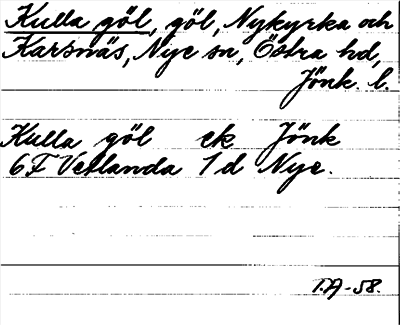 Kulla göl, göl, Nykyrka och
Karsnäs, Nye sn, Östra hd,
Jönk. l.
Kulla göl ek Jönk
6F Vetlanda 1 d Nye.
T.A -58.